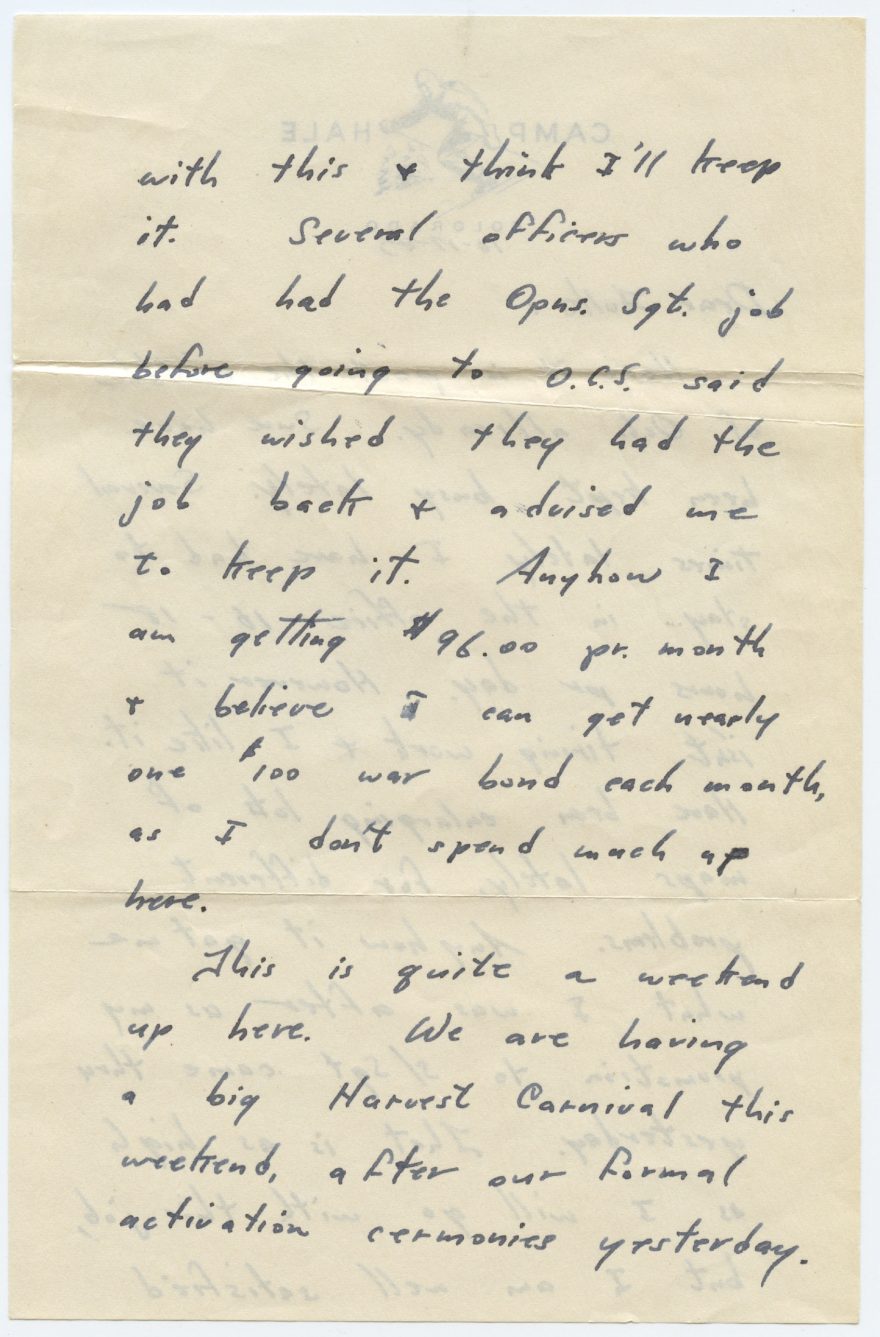 with this & think I'll keep
it. Several officers who
had had the Opns. Sgt. job
before going to O.C.S. said
they wished they had the
job back & advised me
to keep it. Anyhow I
am getting $96.00 pr. month
& believe I can get nearly
one $100 war bond each month,
as I don't spend much up
here.
This is quite a weekend
up here. We are having
a big Harvest Carnival this
weekend, after our formal
activation cermonies yesterday.